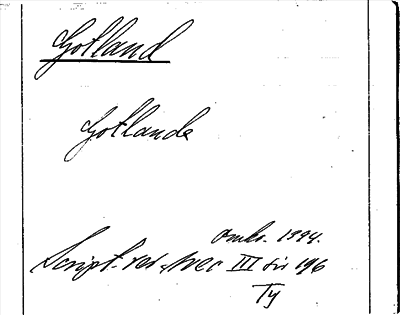 Gotland
Gotlande
omkr. 1394.
Script. rer. svec III s. 196
Ty